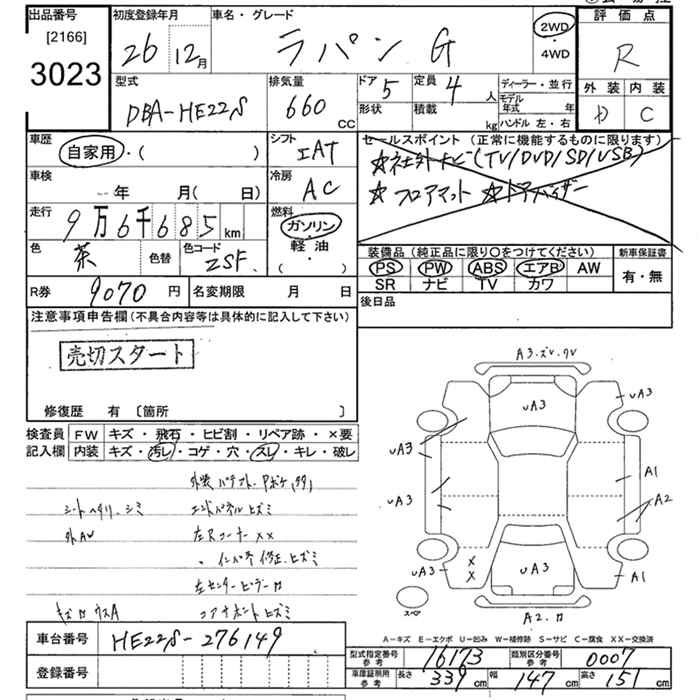 出品番号
[2166]
3023
初度登録年月
26 12月
車名・グレード
ラパン G
2WD
・
4WD
評価点
R
外装 内装
D C
型式
DBA-HE22S
排気量
660
CC
ドア 5
定員 4 人
形状
積載 kg
ディーラー・並行
モデル年式 年
ハンドル 左・右
車歴
自家用・( )
シフト
IAT
車検
年 月( 日)
冷房
AC
走行
9万6千685km
燃料
ガソリン
・
軽油
( )
色
茶
色替
色コード
ZSF
セールスポイント (正常に機能するものに限ります)
☆社外ナビ(TV/DVD/SD/USB)
☆フロアマット ☆ドアバイザー
装備品(純正品に限り○をつけてください)
PS PW ABS エアB AW
SR ナビ TV カワ
新車保証書
有・無
R券 9070円
名変期限 月 日
後日品
注意事項申告欄(不具合内容等は具体的に記入して下さい)
売切スタート
修復歴 有 〔箇所 〕
検査員
記入欄
FW キズ・飛石・ヒビ割・リペア跡・×要
内装 キズ・汚レ・コゲ・穴・スレ・キレ・破レ
シートヘタリ、シミ
エンドパネルヒズミ
外AW
左Rコーナー XX
・インパネ修正、ヒズミ
左センターピラー
コアサポートヒズミ
A3.ズレ.ワレ
UA3
UA3
UA3
A1
UA3
A2
UA3
UA3
×
×
A1
スペア
A2.
A-キズ E-エクボ U-凹み W-補修跡 S-サビ C-腐食 XX-交換済
車台番号 HE22S-276149
登録番号
型式指定番号
参考
16173
類別区分番号
参考
0007
車庫証明用
参考
長さ 339cm
幅 147cm
高さ 151cm